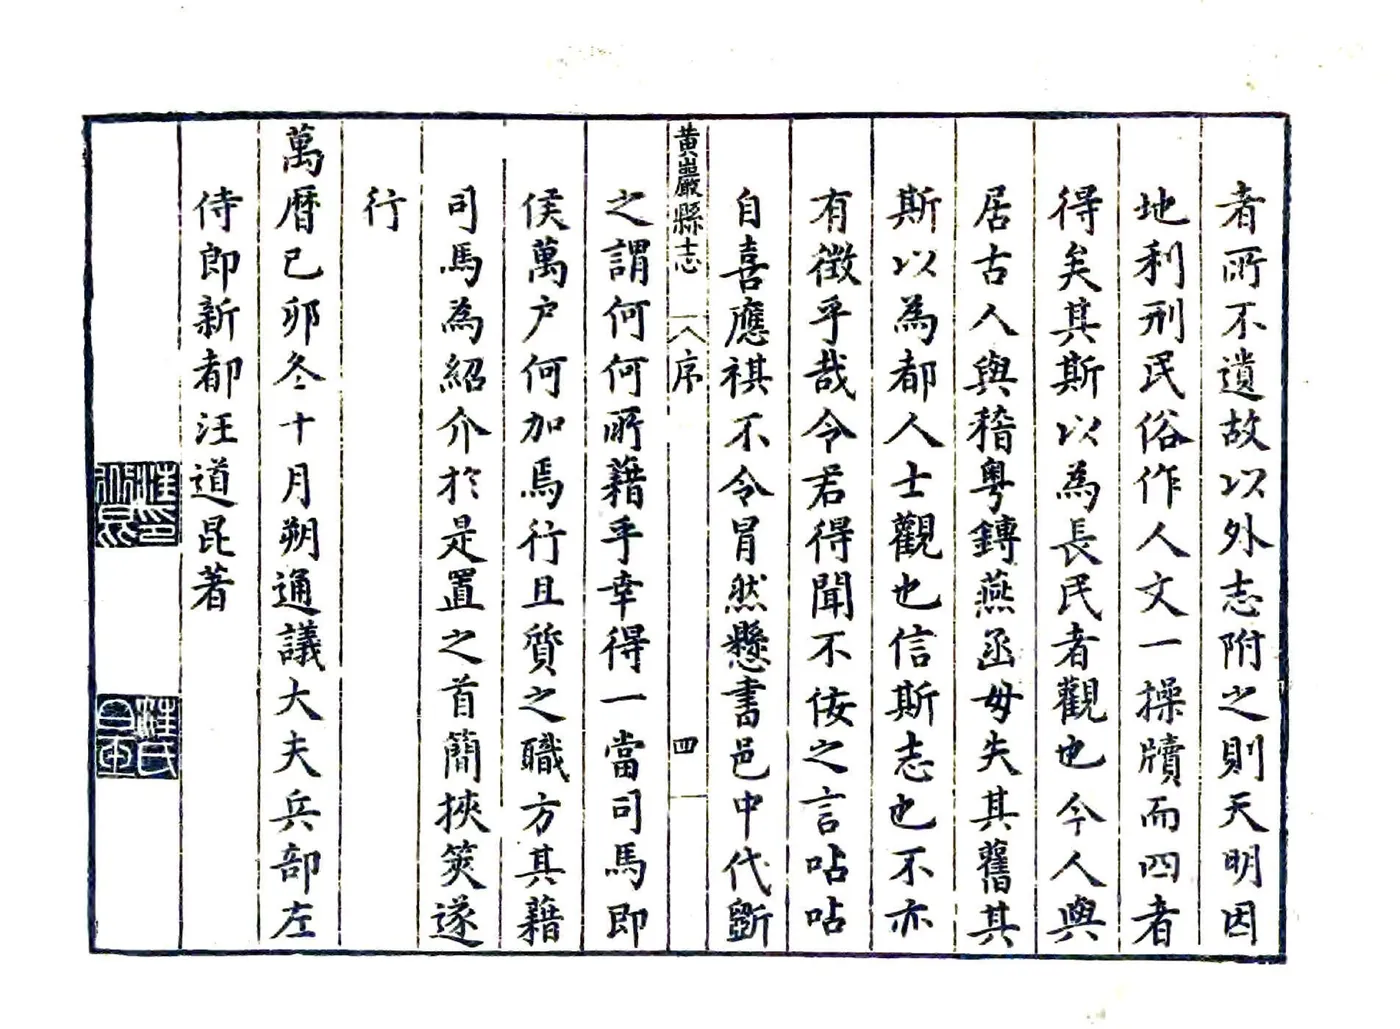 者所不遺故以外志附之則天明因
地利刑民俗作人文一操牘而四者
得矣其斯以為長民者觀也今人與
居古人與稽粵鎛燕函毋失其舊其
斯以為都人士觀也信斯志也不亦
有徵乎哉令君得聞不佞之言呫呫
自喜應祺不令冒然懸書邑中代斵
黃巖縣志
序
四
之謂何何所藉乎幸得一當司馬即
侯萬户何加焉行且質之職方其藉
司馬為紹介於是置之首簡挾筴遂
行
萬曆己卯冬十月朔通議大夫兵部左
侍郎新都汪道昆著